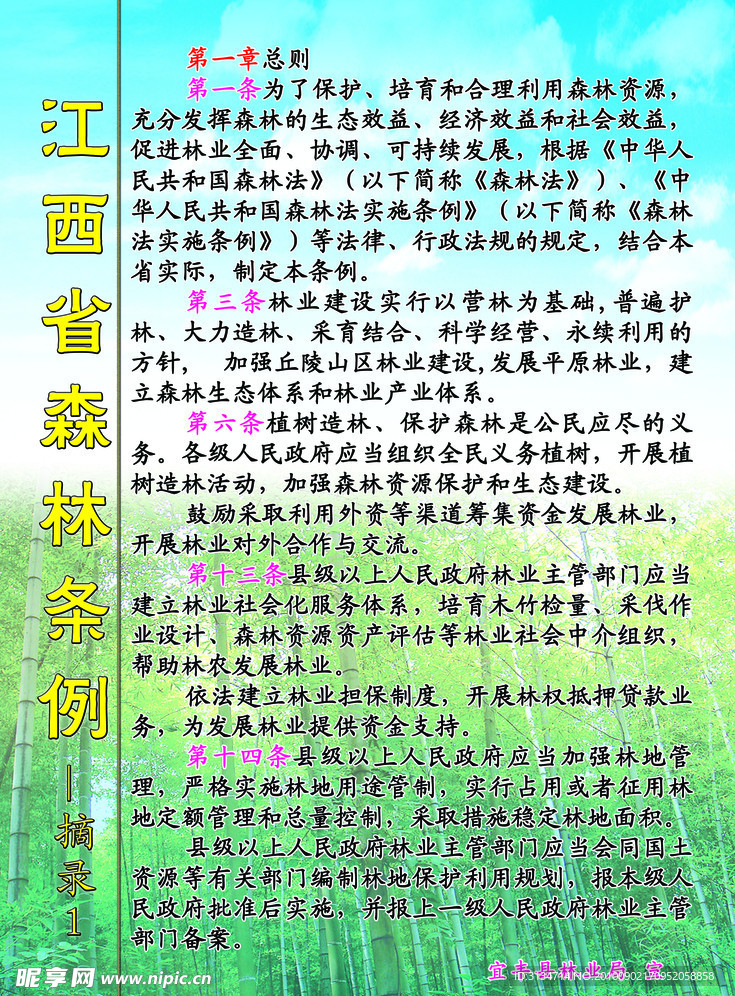 江西省森林条例
—摘录1
第一章总则
第一条为了保护、培育和合理利用森林资源，
充分发挥森林的生态效益、经济效益和社会效益，
促进林业全面、协调、可持续发展，根据《中华人
民共和国森林法》（以下简称《森林法》）、《中
华人民共和国森林法实施条例》（以下简称《森林
法实施条例》）等法律、行政法规的规定，结合本
省实际，制定本条例。
第三条林业建设实行以营林为基础,普遍护
林、大力造林、采育结合、科学经营、永续利用的
方针， 加强丘陵山区林业建设,发展平原林业，建
立森林生态体系和林业产业体系。
第六条植树造林、保护森林是公民应尽的义
务。各级人民政府应当组织全民义务植树，开展植
树造林活动，加强森林资源保护和生态建设。
鼓励采取利用外资等渠道筹集资金发展林业，
开展林业对外合作与交流。
第十三条县级以上人民政府林业主管部门应当
建立林业社会化服务体系，培育木竹检量、采伐作
业设计、森林资源资产评估等林业社会中介组织，
帮助林农发展林业。
依法建立林业担保制度，开展林权抵押贷款业
务，为发展林业提供资金支持。
第十四条县级以上人民政府应当加强林地管
理，严格实施林地用途管制，实行占用或者征用林
地定额管理和总量控制，采取措施稳定林地面积。
县级以上人民政府林业主管部门应当会同国土
资源等有关部门编制林地保护利用规划，报本级人
民政府批准后实施，并报上一级人民政府林业主管
部门备案。
宜丰县林业局 宣
昵享网 www.nipic.cn